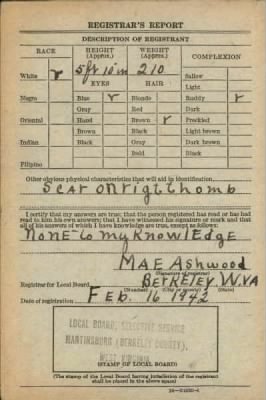 REGISTRAR'S REPORT
DESCRIPTION OF REGISTRANT
RACE HEIGHT (Approx.) WEIGHT (Approx.) COMPLEXION
White ✓ 5 ft 10 in 210 Sallow
EYES HAIR Light
Negro Blue ✓ Blonde Ruddy ✓
Gray Red Dark
Oriental Hazel Brown ✓ Freckled
Brown Black Light brown
Indian Black Gray Dark brown
Bald Black
Filipino
Other obvious physical characteristics that will aid in identification
Scar on rigtthomb
I certify that my answers are true; that the person registered has read or has had
read to him his own answers; that I have witnessed his signature or mark and that
all of his answers of which I have knowledge are true, except as follows:
None to my Knowledge
MAE Ashwood
(Signature of registrar)
Registrar for Local Board BERKELEY W.VA
(Number) (City or county) (State)
Date of registration FEB. 16 1942
LOCAL BOARD, SELECTIVE SERVICE
MARTINSBURG (BERKELEY COUNTY),
WEST VIRGINIA
(STAMP OF LOCAL BOARD)
(The stamp of the Local Board having jurisdiction of the registrant
shall be placed in the above space)